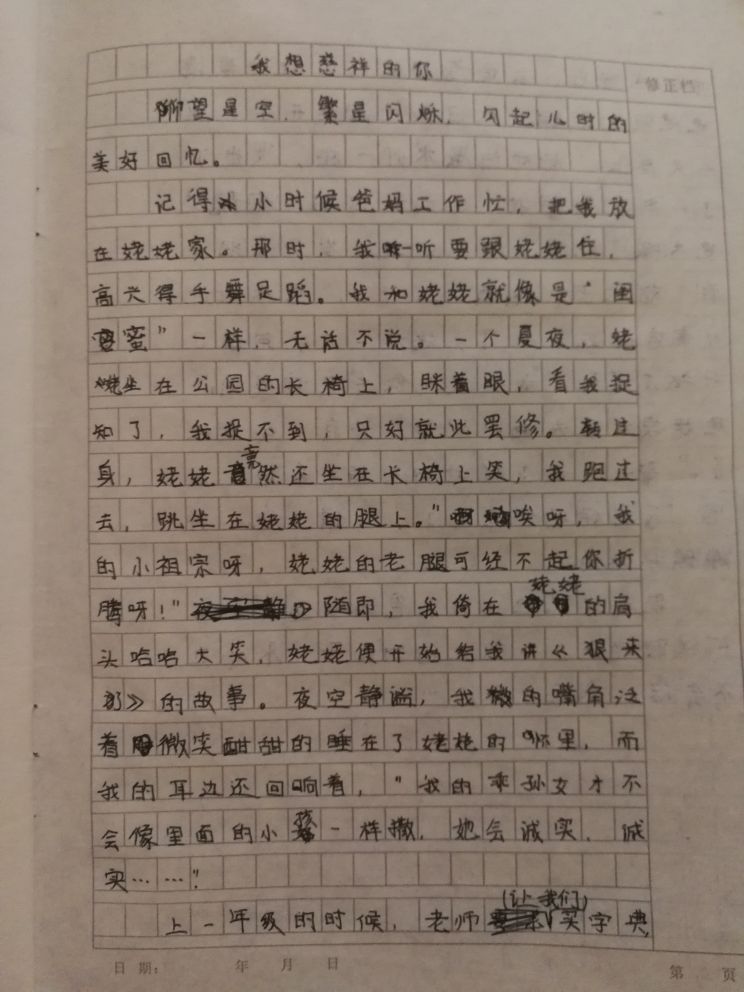 我想慈祥的你
修正栏
眺望星空，繁星闪烁，闪起儿时的
美好回忆。
记得小时候爸妈工作忙，把我放
在姥姥家。那时，我一听要跟姥姥住，
高兴得手舞足蹈。我和姥姥就像是“闺
蜜”一样，无话不说。一个夏夜，姥
姥坐在公园的长椅上，眯着眼，看我捉
知了，我捉不到，只好就此罢修。转过
身，姥姥竟然还坐在长椅上笑，我跑过
去，跳坐在姥姥的腿上。“唉呀，我
的小祖宗呀，姥姥的老腿可经不起你折
腾呀！”随即，我倚在姥姥的肩
头哈哈大笑，姥姥便开始给我讲《狼来
了》的故事。夜空静谧，我的嘴角泛
着微笑甜甜的睡在了姥姥的怀里，而
我的耳边还回响着，“我的乖孙女才不
会像里面的小孩一样撒，她会诚实，诚
实……”
上一年级的时候，老师（让我们）买字典，
日期： 年 月 日
第 页